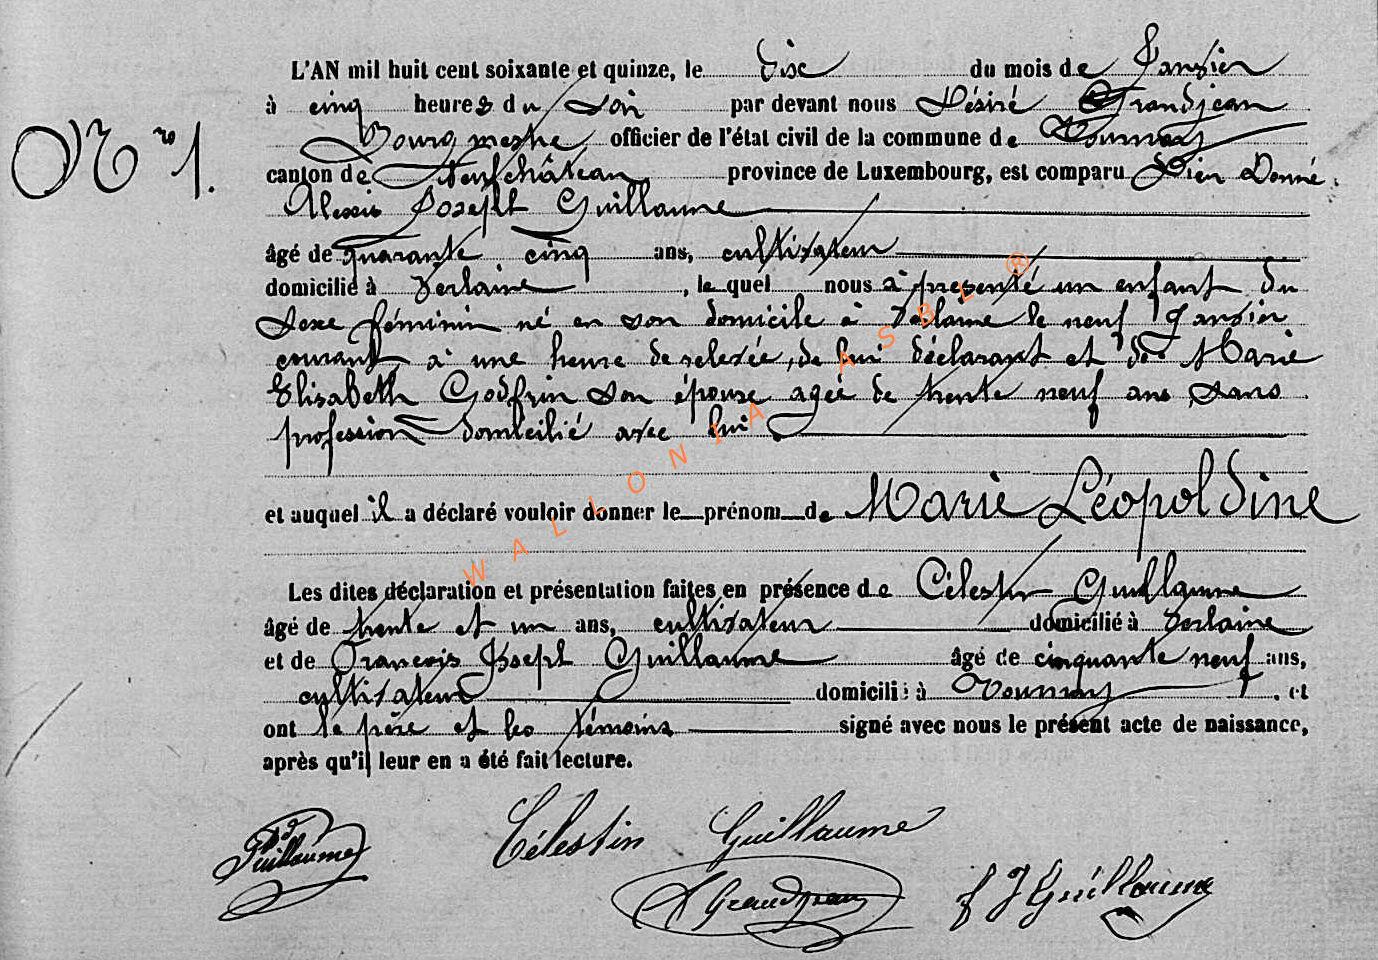 L'AN mil huit cent soixante et quinze, le dix du mois de Janvier
N.ro 1.
à cinq heures du Soir par devant nous Désiré Grandjean
Bourgmestre officier de l'état civil de la commune de Tournay
canton de Neufchâteau province de Luxembourg, est comparu Dieu Donné
Alexis Joseph Guillaume
âgé de quarante cinq ans, cultivateur
domicilié à Verlaine, le quel nous à présenté un enfant du
Sexe féminin né en son domicile à Verlaine le neuf Janvier
courant, à une heure de relevée, de lui déclarant et de Marie
Elisabeth Godfrin son épouse agée de trente neuf ans, sans
profession domicilié avec lui
et auquel il a déclaré vouloir donner le prénom de Marie Léopoldine
Les dites déclaration et présentation faites en présence de Célestin Guillaume
âgé de trente et un ans, cultivateur domicilié à Verlaine
et de François Joseph Guillaume âgé de cinquante neuf ans,
cultivateur domicilié à Tournay, et
ont le père et les témoins signé avec nous le présent acte de naissance,
après qu'il leur en a été fait lecture.
Guillaume
Célestin Guillaume
D Grandjean
f J Guillaume
WALLONIA ASBL ®